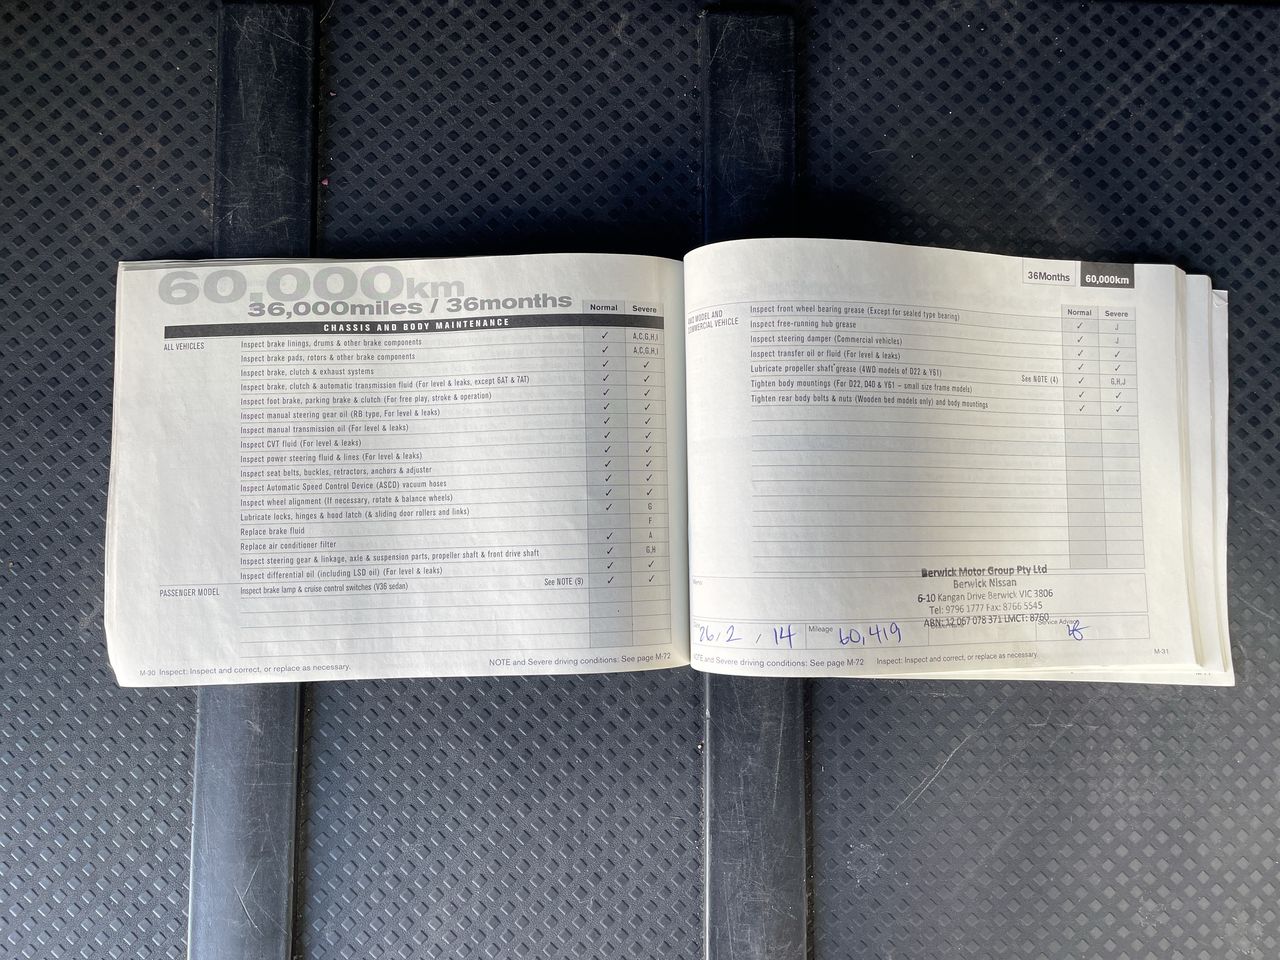 60,000km
36,000miles / 36months
Normal Severe
CHASSIS AND BODY MAINTENANCE
ALL VEHICLES Inspect brake linings, drums & other brake components ✓ A,C,G,H,I
Inspect brake pads, rotors & other brake components ✓ A,C,G,H,I
Inspect brake, clutch & exhaust systems ✓ ✓
Inspect brake, clutch & automatic transmission fluid (For level & leaks, except 6AT & 7AT) ✓ ✓
Inspect foot brake, parking brake & clutch (For free play, stroke & operation) ✓ ✓
Inspect manual steering gear oil (RB type, For level & leaks) ✓ ✓
Inspect manual transmission oil (For level & leaks) ✓ ✓
Inspect CVT fluid (For level & leaks) ✓ ✓
Inspect power steering fluid & lines (For level & leaks) ✓ ✓
Inspect seat belts, buckles, retractors, anchors & adjuster ✓ ✓
Inspect Automatic Speed Control Device (ASCD) vacuum hoses ✓ ✓
Inspect wheel alignment (If necessary, rotate & balance wheels) ✓ ✓
Lubricate locks, hinges & hood latch (& sliding door rollers and links) ✓ G
Replace brake fluid F
Replace air conditioner filter ✓ A
Inspect steering gear & linkage, axle & suspension parts, propeller shaft & front drive shaft ✓ G,H
Inspect differential oil (including LSD oil) (For level & leaks) ✓ ✓
PASSENGER MODEL Inspect brake lamp & cruise control switches (V36 sedan) See NOTE (9) ✓ ✓
M-30 Inspect: Inspect and correct, or replace as necessary.
NOTE and Severe driving conditions: See page M-72
36Months 60,000km
Normal Severe
MODEL AND
COMMERCIAL VEHICLE
Inspect front wheel bearing grease (Except for sealed type bearing) ✓ J
Inspect free-running hub grease ✓ J
Inspect steering damper (Commercial vehicles) ✓ ✓
Inspect transfer oil or fluid (For level & leaks) ✓ ✓
Lubricate propeller shaft grease (4WD models of D22 & Y61) See NOTE (4) ✓ G,H,J
Tighten body mountings (For D22, D40 & Y61 – small size frame models) ✓ ✓
Tighten rear body bolts & nuts (Wooden bed models only) and body mountings ✓ ✓
Berwick Motor Group Pty Ltd
Berwick Nissan
6-10 Kangan Drive Berwick VIC 3806
Tel: 9796 1777 Fax: 8766 5545
ABN: 12 067 078 371 LMCT: 8760
Memo:
26, 2, 14 Mileage 60,419 Service Advisor
NOTE and Severe driving conditions: See page M-72 Inspect: Inspect and correct, or replace as necessary.
M-31